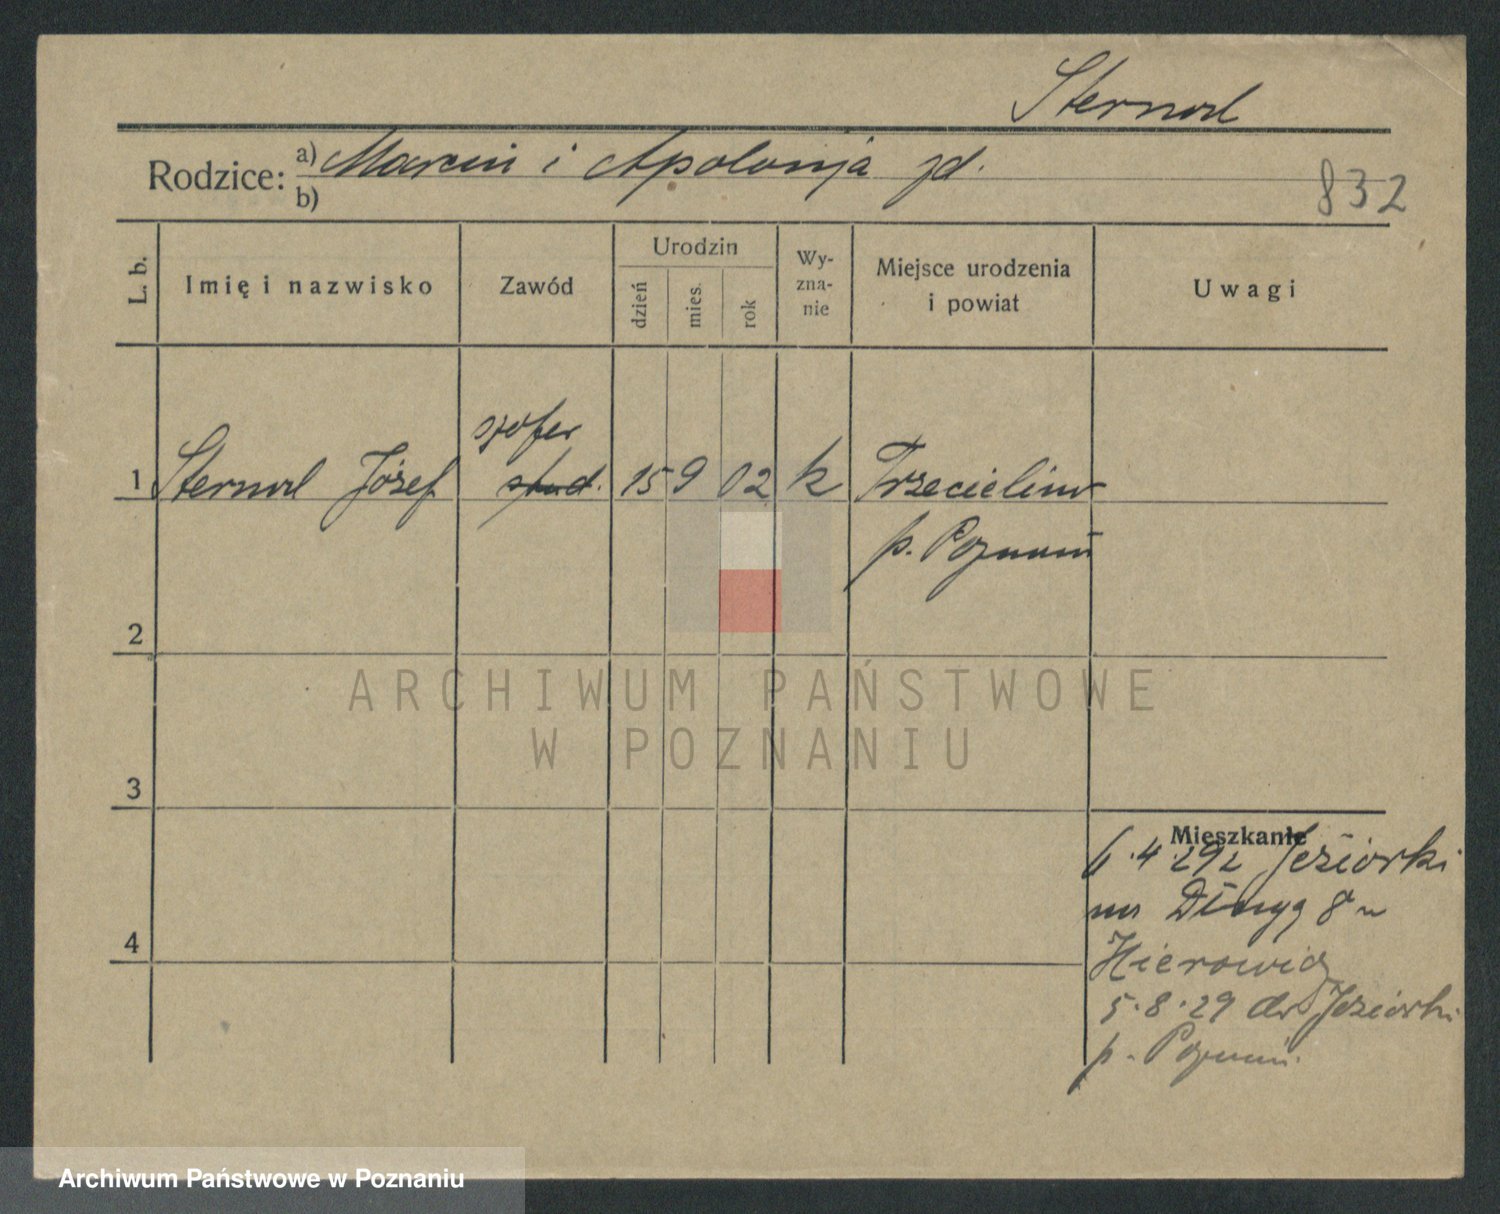 Sternal
Rodzice: a) Marcin i Apolonja zd.
b)
832
L. b.
Imię i nazwisko
Zawód
Urodzin
dzień
mies.
rok
Wy-
zna-
nie
Miejsce urodzenia
i powiat
Uwagi
szofer
1 Sternal Józef stud. 15 9 02 k Trzecielino
p. Poznań
2
ARCHIWUM PAŃSTWOWE
W POZNANIU
3
Mieszkanie
6.4.29 z Jeziorki
na Długą 8 u
5.8.29 do Jeziorki
4
p. Poznań.
Archiwum Państwowe w Poznaniu